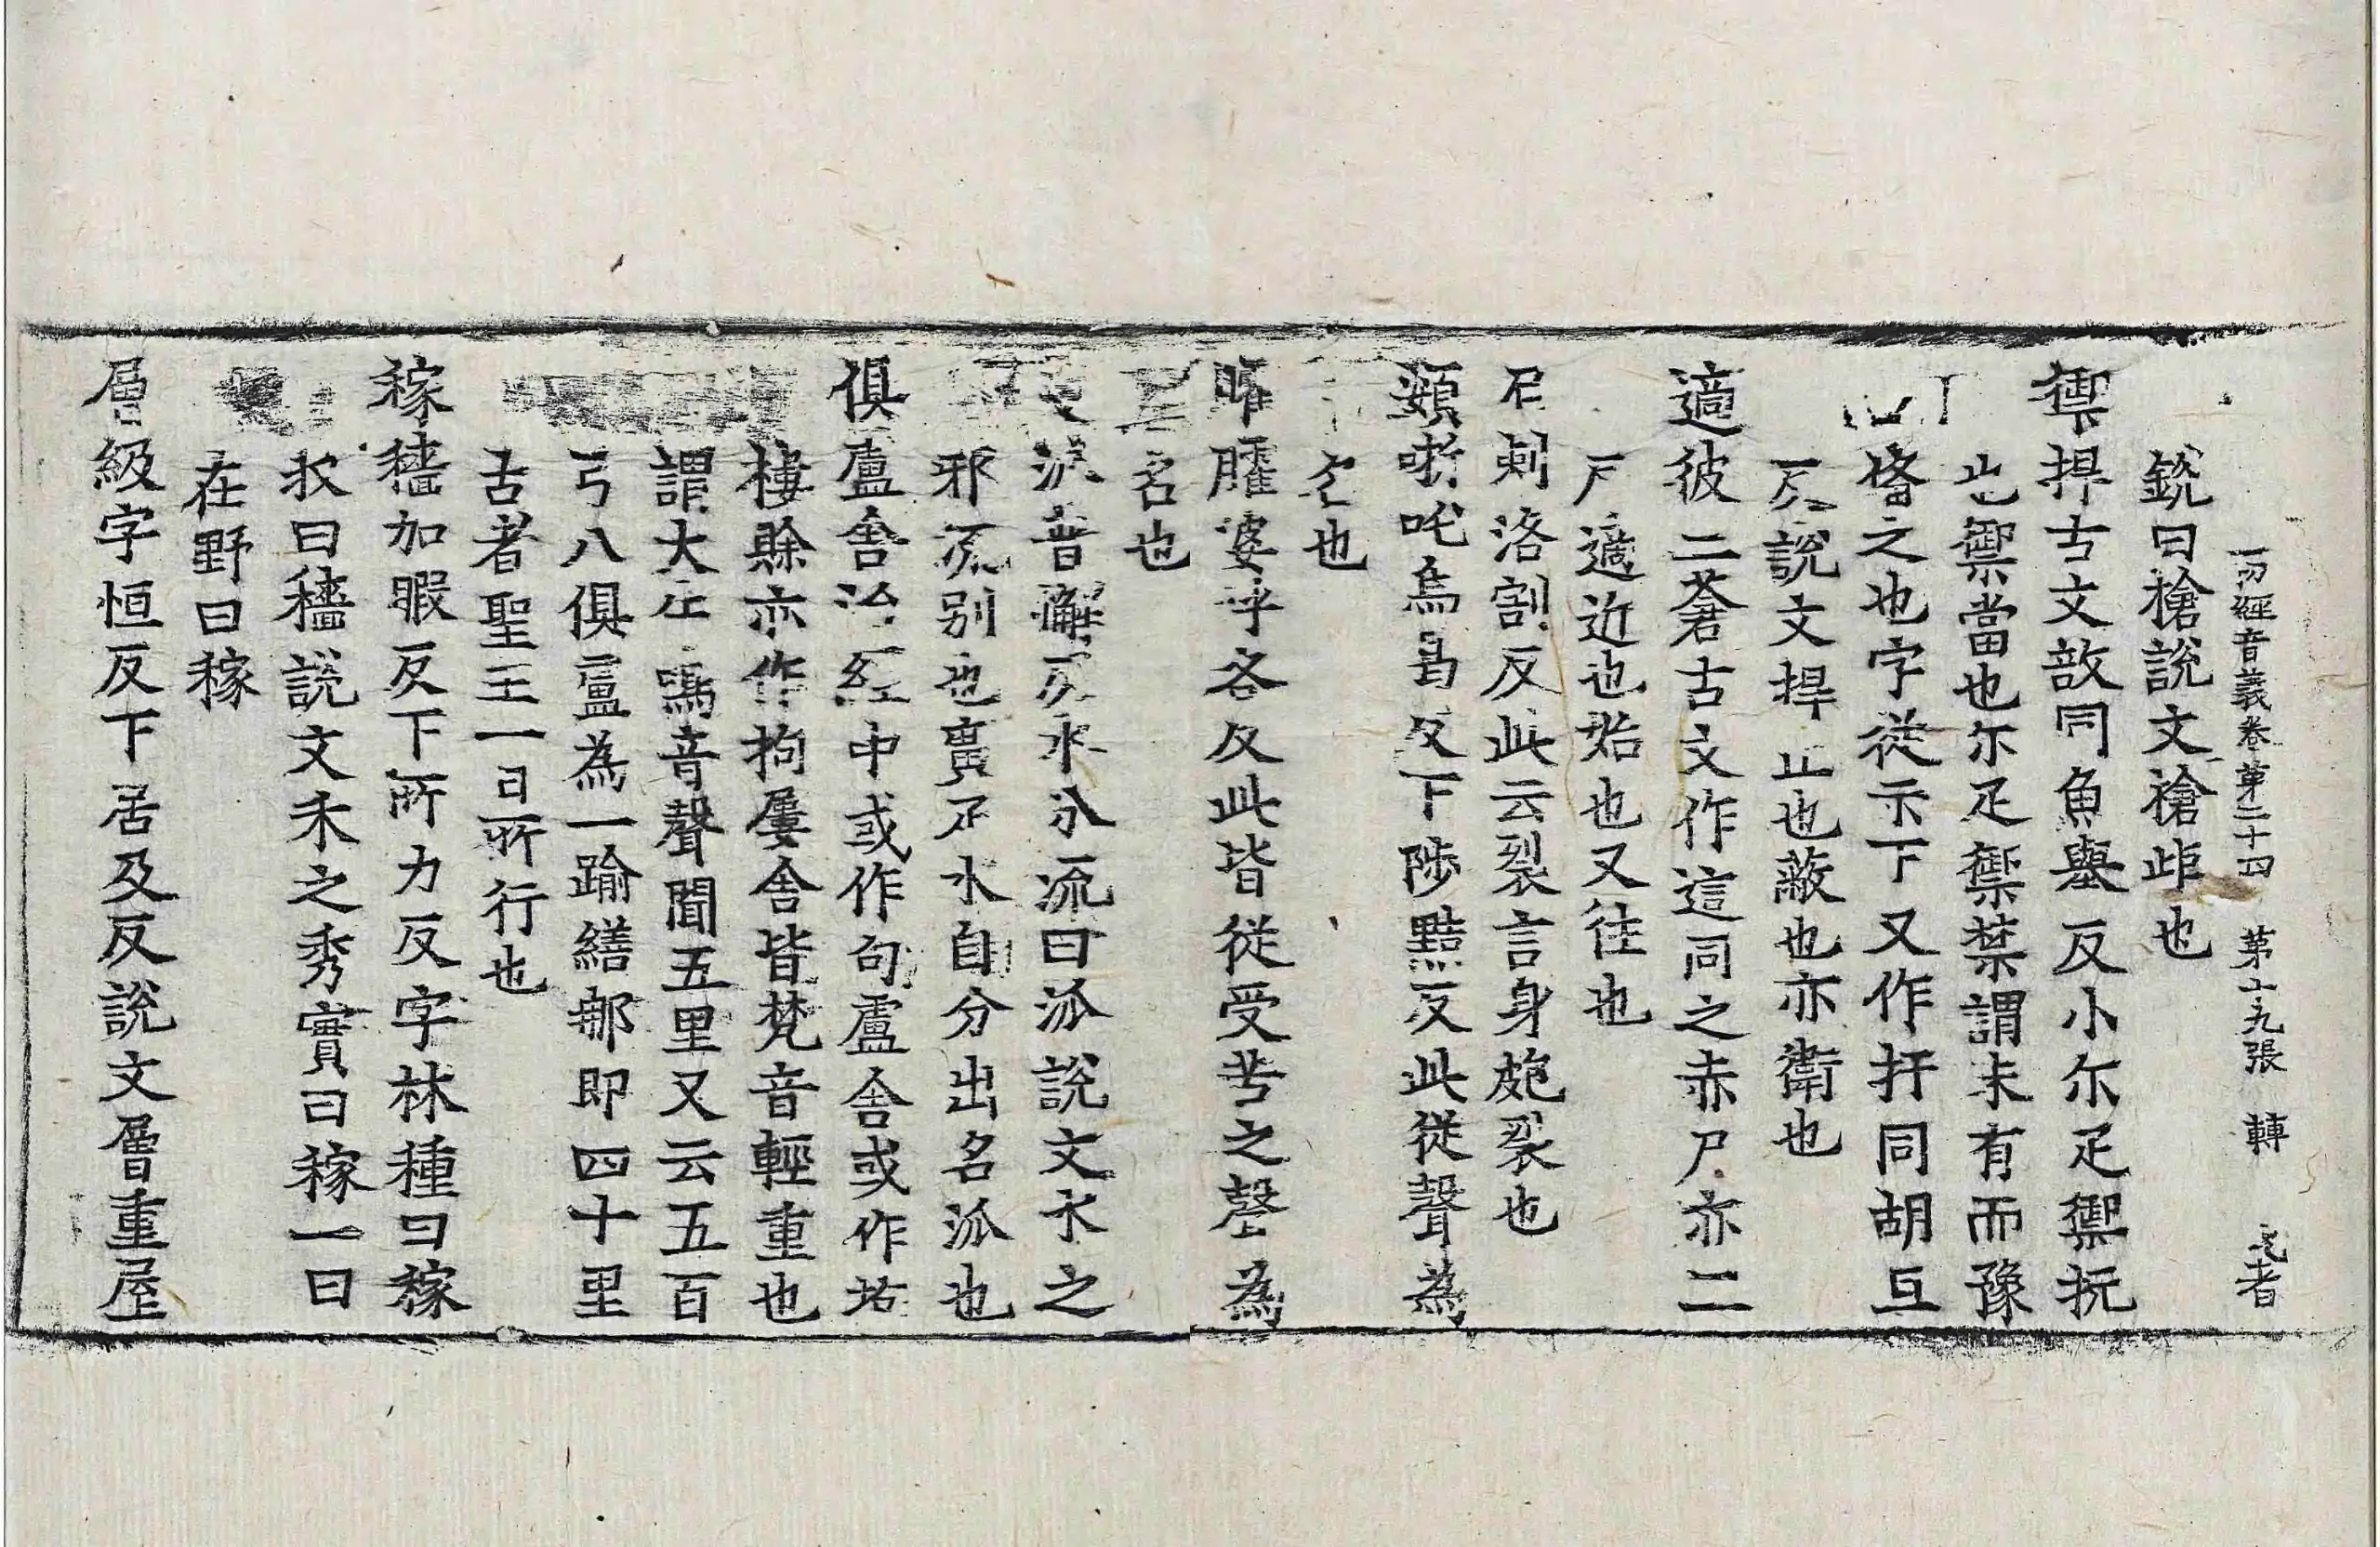 一切經音義卷第二十四 第十九張 轉 者
銳曰槍說文槍歫也
禦捍古文敔同魚舉反小尔疋禦抗
也禦當也尔疋禦禁謂未有而豫
俻之也字從示下又作扞同胡旦
反說文捍止也蔽也亦衛也
適彼二蒼古文作這同之赤尸亦二
反適近也始也又往也
剌洛割反此云裂言身皰裂也
頞哳吒烏曷反下陟黠反此從聲為
名也
臛婆呼各反此皆從受苦之聲為
名也
派普懈反水分流曰派說文水之
邪流別也廣疋水自分出名派也
俱盧舍治經中或作句盧舍或作拘
樓賒亦作拘屢舍皆梵音輕重也
謂大牛鳴音聲聞五里又云五百
弓八俱盧為一踰繕那即四十里
古者聖王一日所行也
稼穡加暇反下所力反字林種曰稼
收曰穡說文禾之秀實曰稼一曰
在野曰稼
層級字恒反下居及反說文層重屋